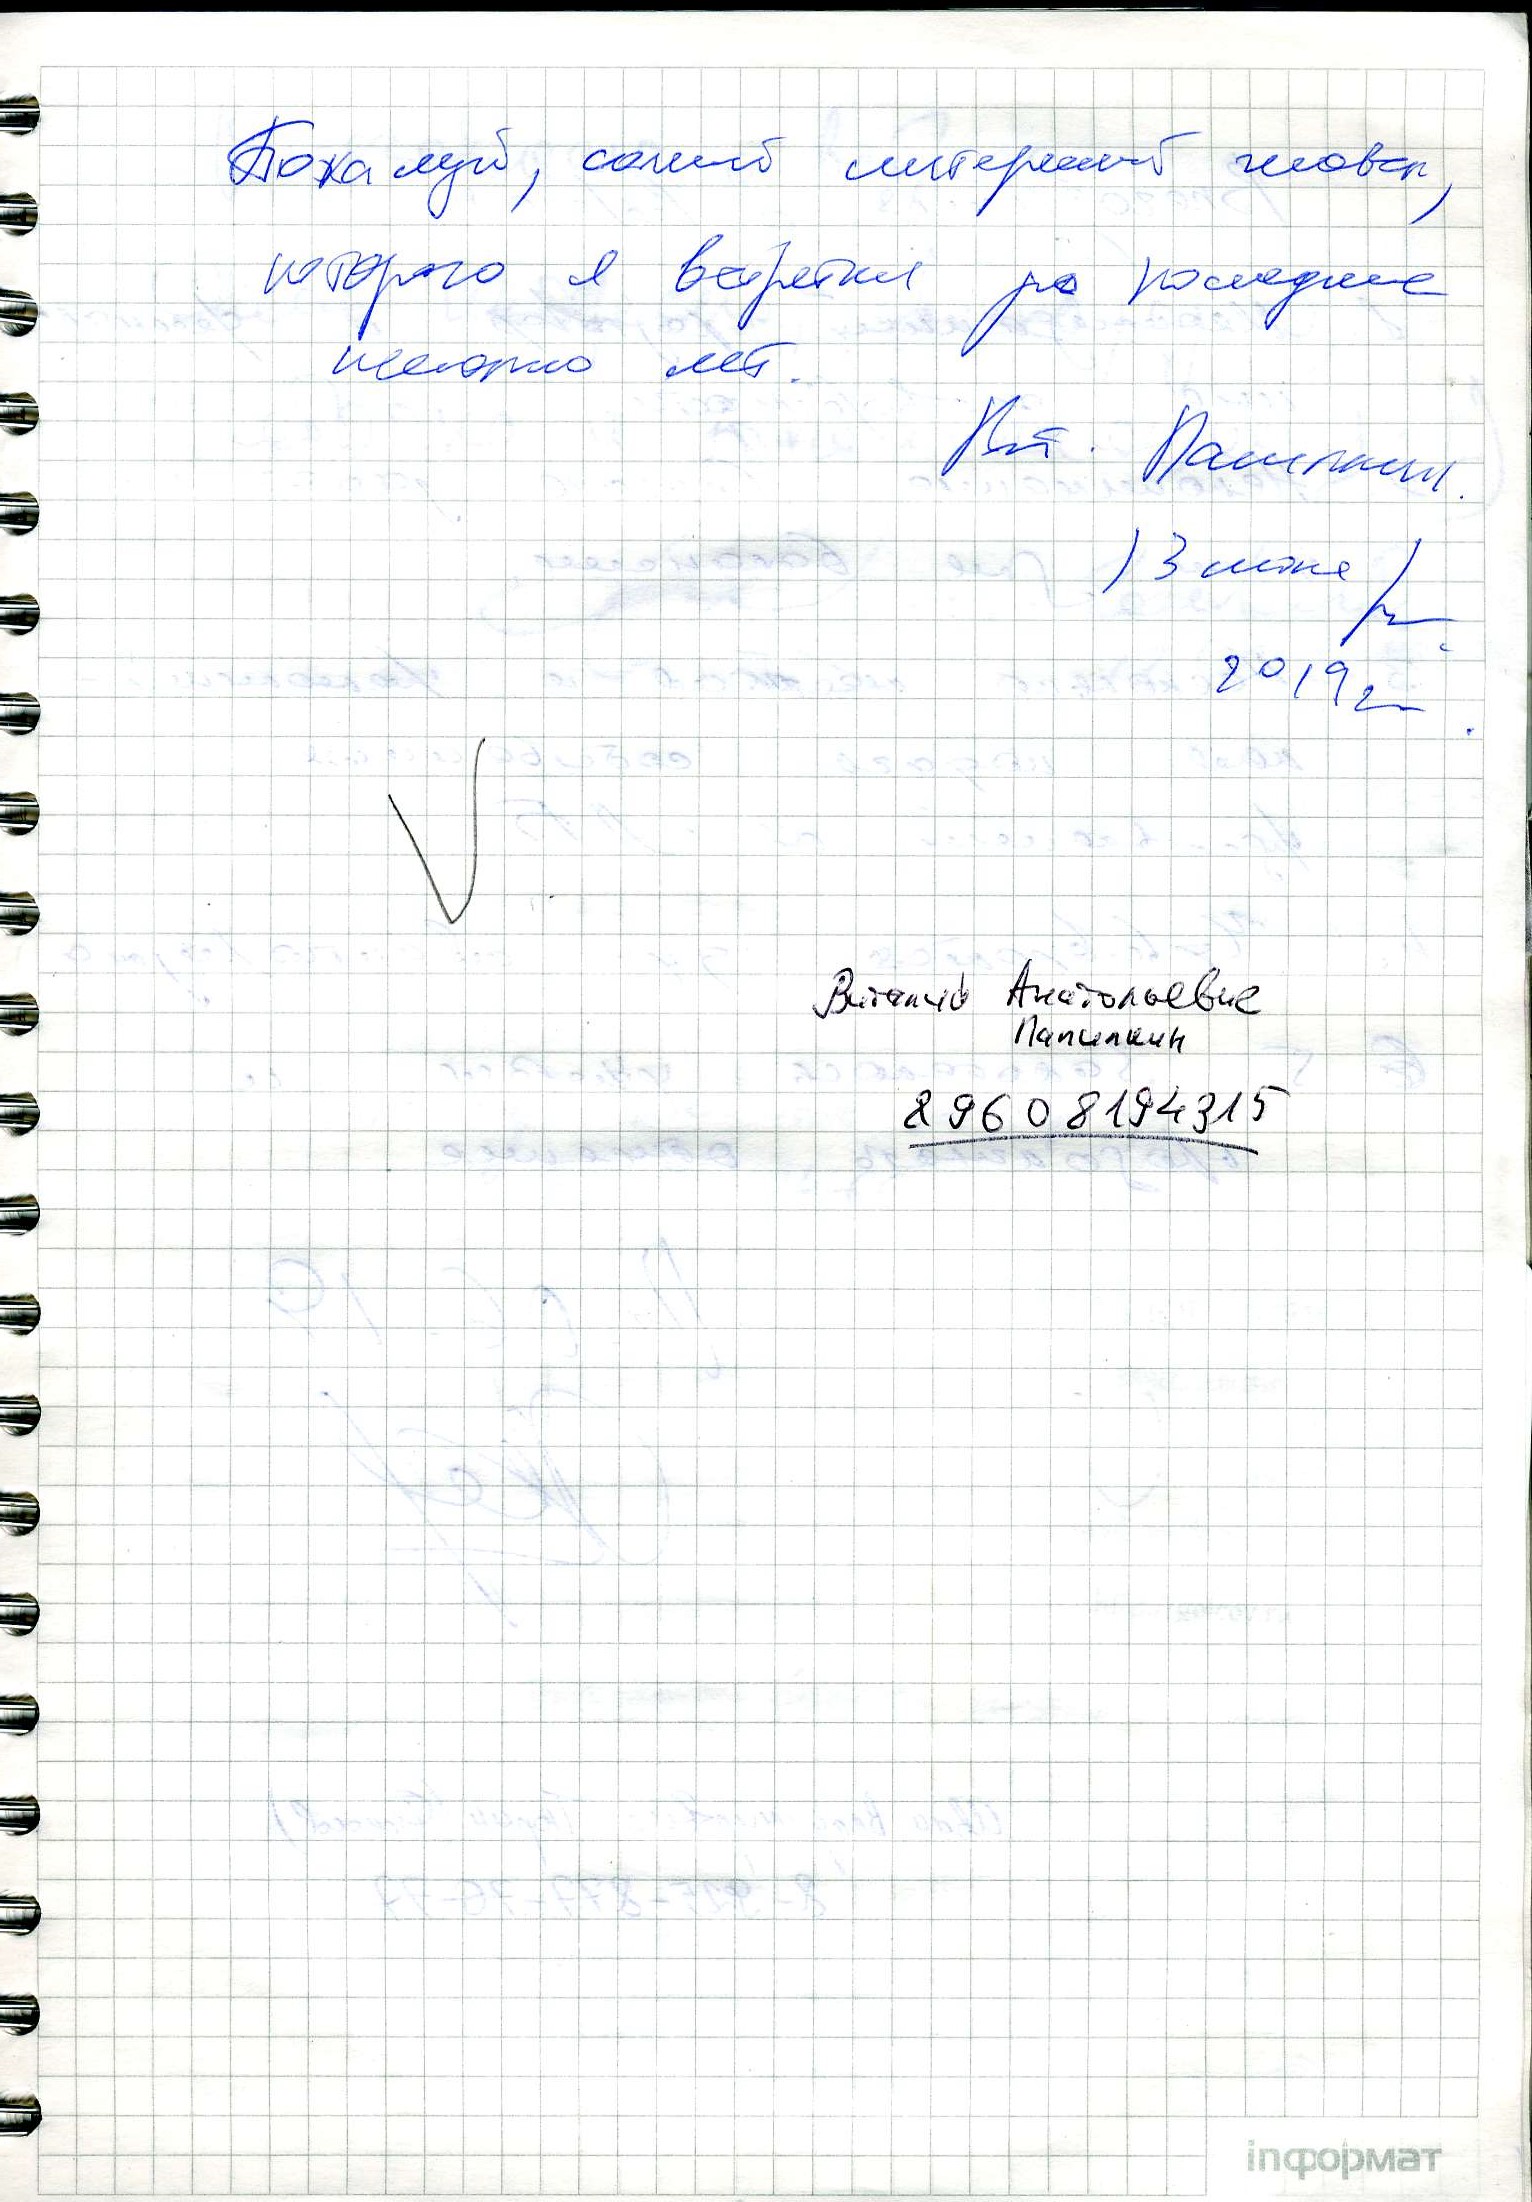 Пожалуй, самый интересный человек,
которого я встретил за последние
несколько лет.
Вит. Папилкин.
13 июня
2019 г.
Виталий Анатольевич
Папилкин
89608194315
inформат